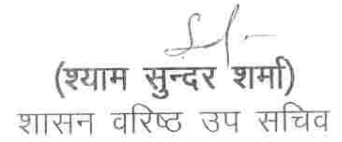 (श्याम सुन्दर शर्मा)
शासन वरिष्ठ उप सचिव